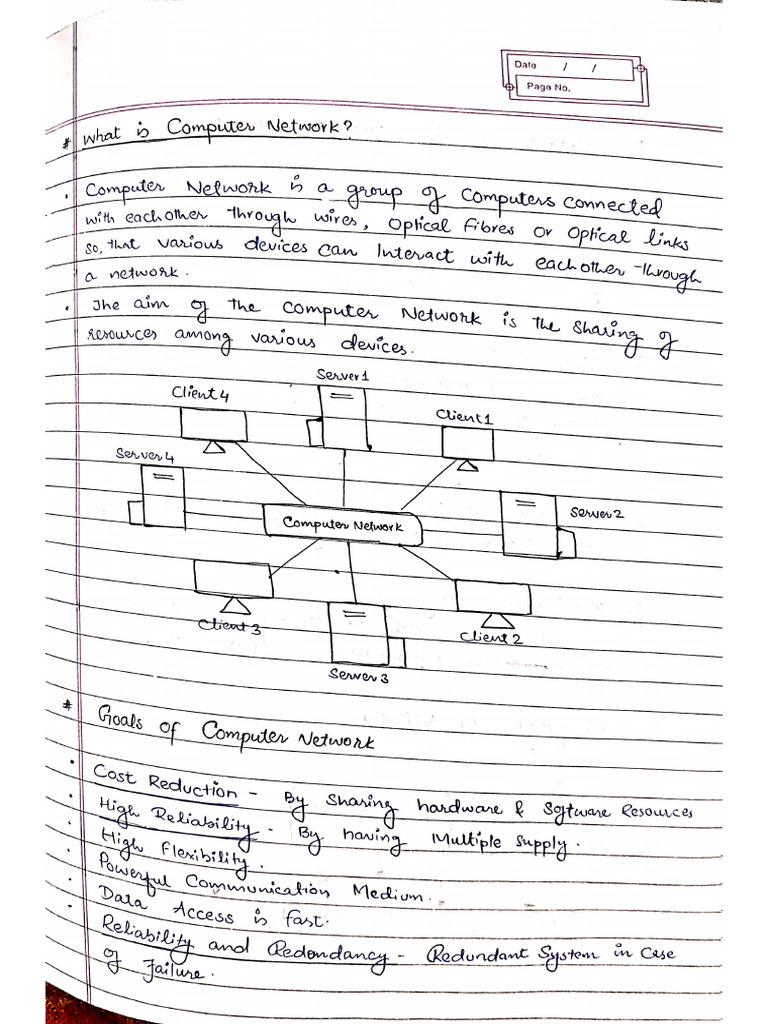 Date / /
Page No.
# What is Computer Network?
. Computer Network is a group of Computers connected
with eachother through wires, Optical Fibres or Optical links
so, that various devices can Interact with eachother through
a network.
. The aim of the Computer Network is the Sharing of
resources among various devices.
Server1
Client 4
Client 1
Server 4
Server 2
Computer Network
Client 3
Client 2
Server 3
# Goals of Computer Network
. Cost Reduction - By Sharing hardware & Software Resources
. High Reliability - By having Multiple Supply.
. High Flexibility.
. Powerful Communication Medium.
. Data Access is fast.
. Reliability and Redondancy - Redundant System in Case
of Failure.